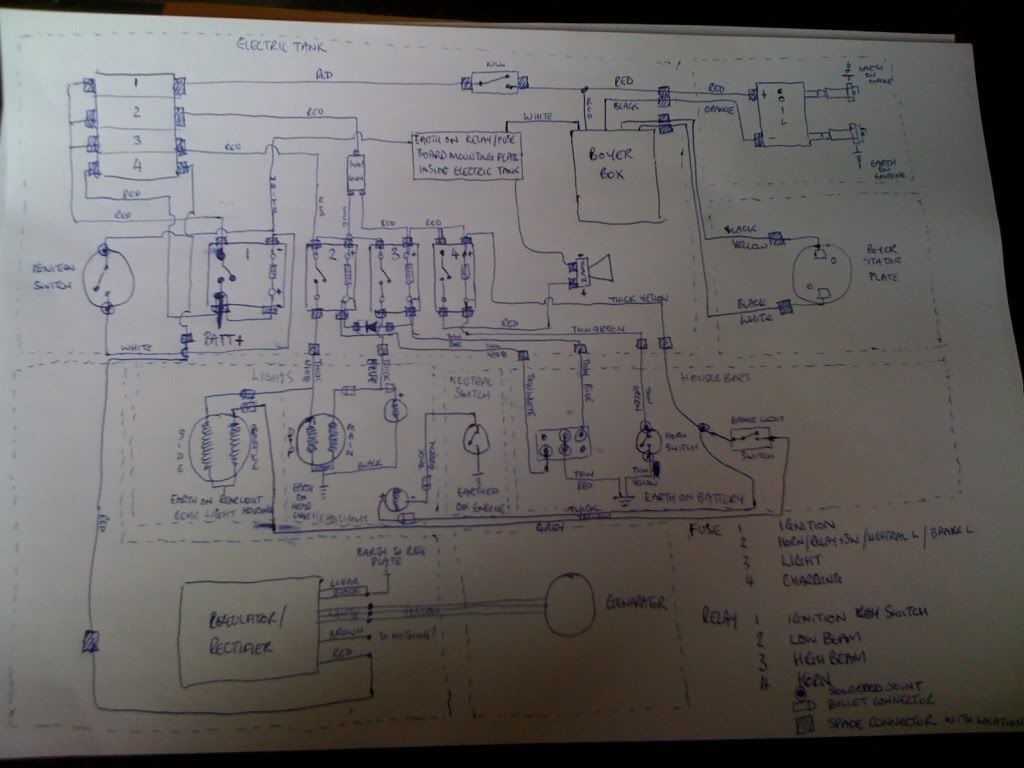 ELECTRIC TANK
KILL
1
2
3
4
RED
RED
RED
RED
RED
RED
BLACK
RED
ORANGE
WHITE
EARTH ON RELAY/FUSE
BOARD MOUNTING PLATE
INSIDE ELECTRIC TANK
BOYER
BOX
+
COIL
-
EARTH
ON
ENGINE
EARTH
ON ENGINE
RED
RED
RED
RED
IGNITION
SWITCH
1
2
3
4
BATT+
WHITE
BLACK
YELLOW
BOYER
STATOR
PLATE
BLACK
WHITE
THICK YELLOW
RED
THIN GREEN
LIGHTS
NEUTRAL
SWITCH
HANDLEBARS
THIN WHITE
THIN BLUE
BRAKE LIGHT
SWITCH
HORN
SWITCH
BLACK
THICK
GREEN
THIN
RED
THIN
YELLOW
EARTH ON REARLIGHT
REAR LIGHT HOUSING
EARTH
ON
HEAD
LIGHT
HEADLIGHT
EARTHED
ON ENGINE
EARTH ON BATTERY
GREY
RED
EARTH TO REG
PLATE
REGULATOR/
RECTIFIER
CLEAR
BLACK
WHITE
YELLOW
BROWN
TO NOTHING?
RED
GENERATOR
FUSE
1 IGNITION
2 HORN/RELAY ISW/NEUTRAL L/BRAKE L
3 LIGHT
4 CHARGING
RELAY
1 IGNITION KEY SWITCH
2 LOW BEAM
3 HIGH BEAM
4 HORN
SOLDERED JOINT
BULLET CONNECTOR
SPADE CONNECTOR WITH LOCATION